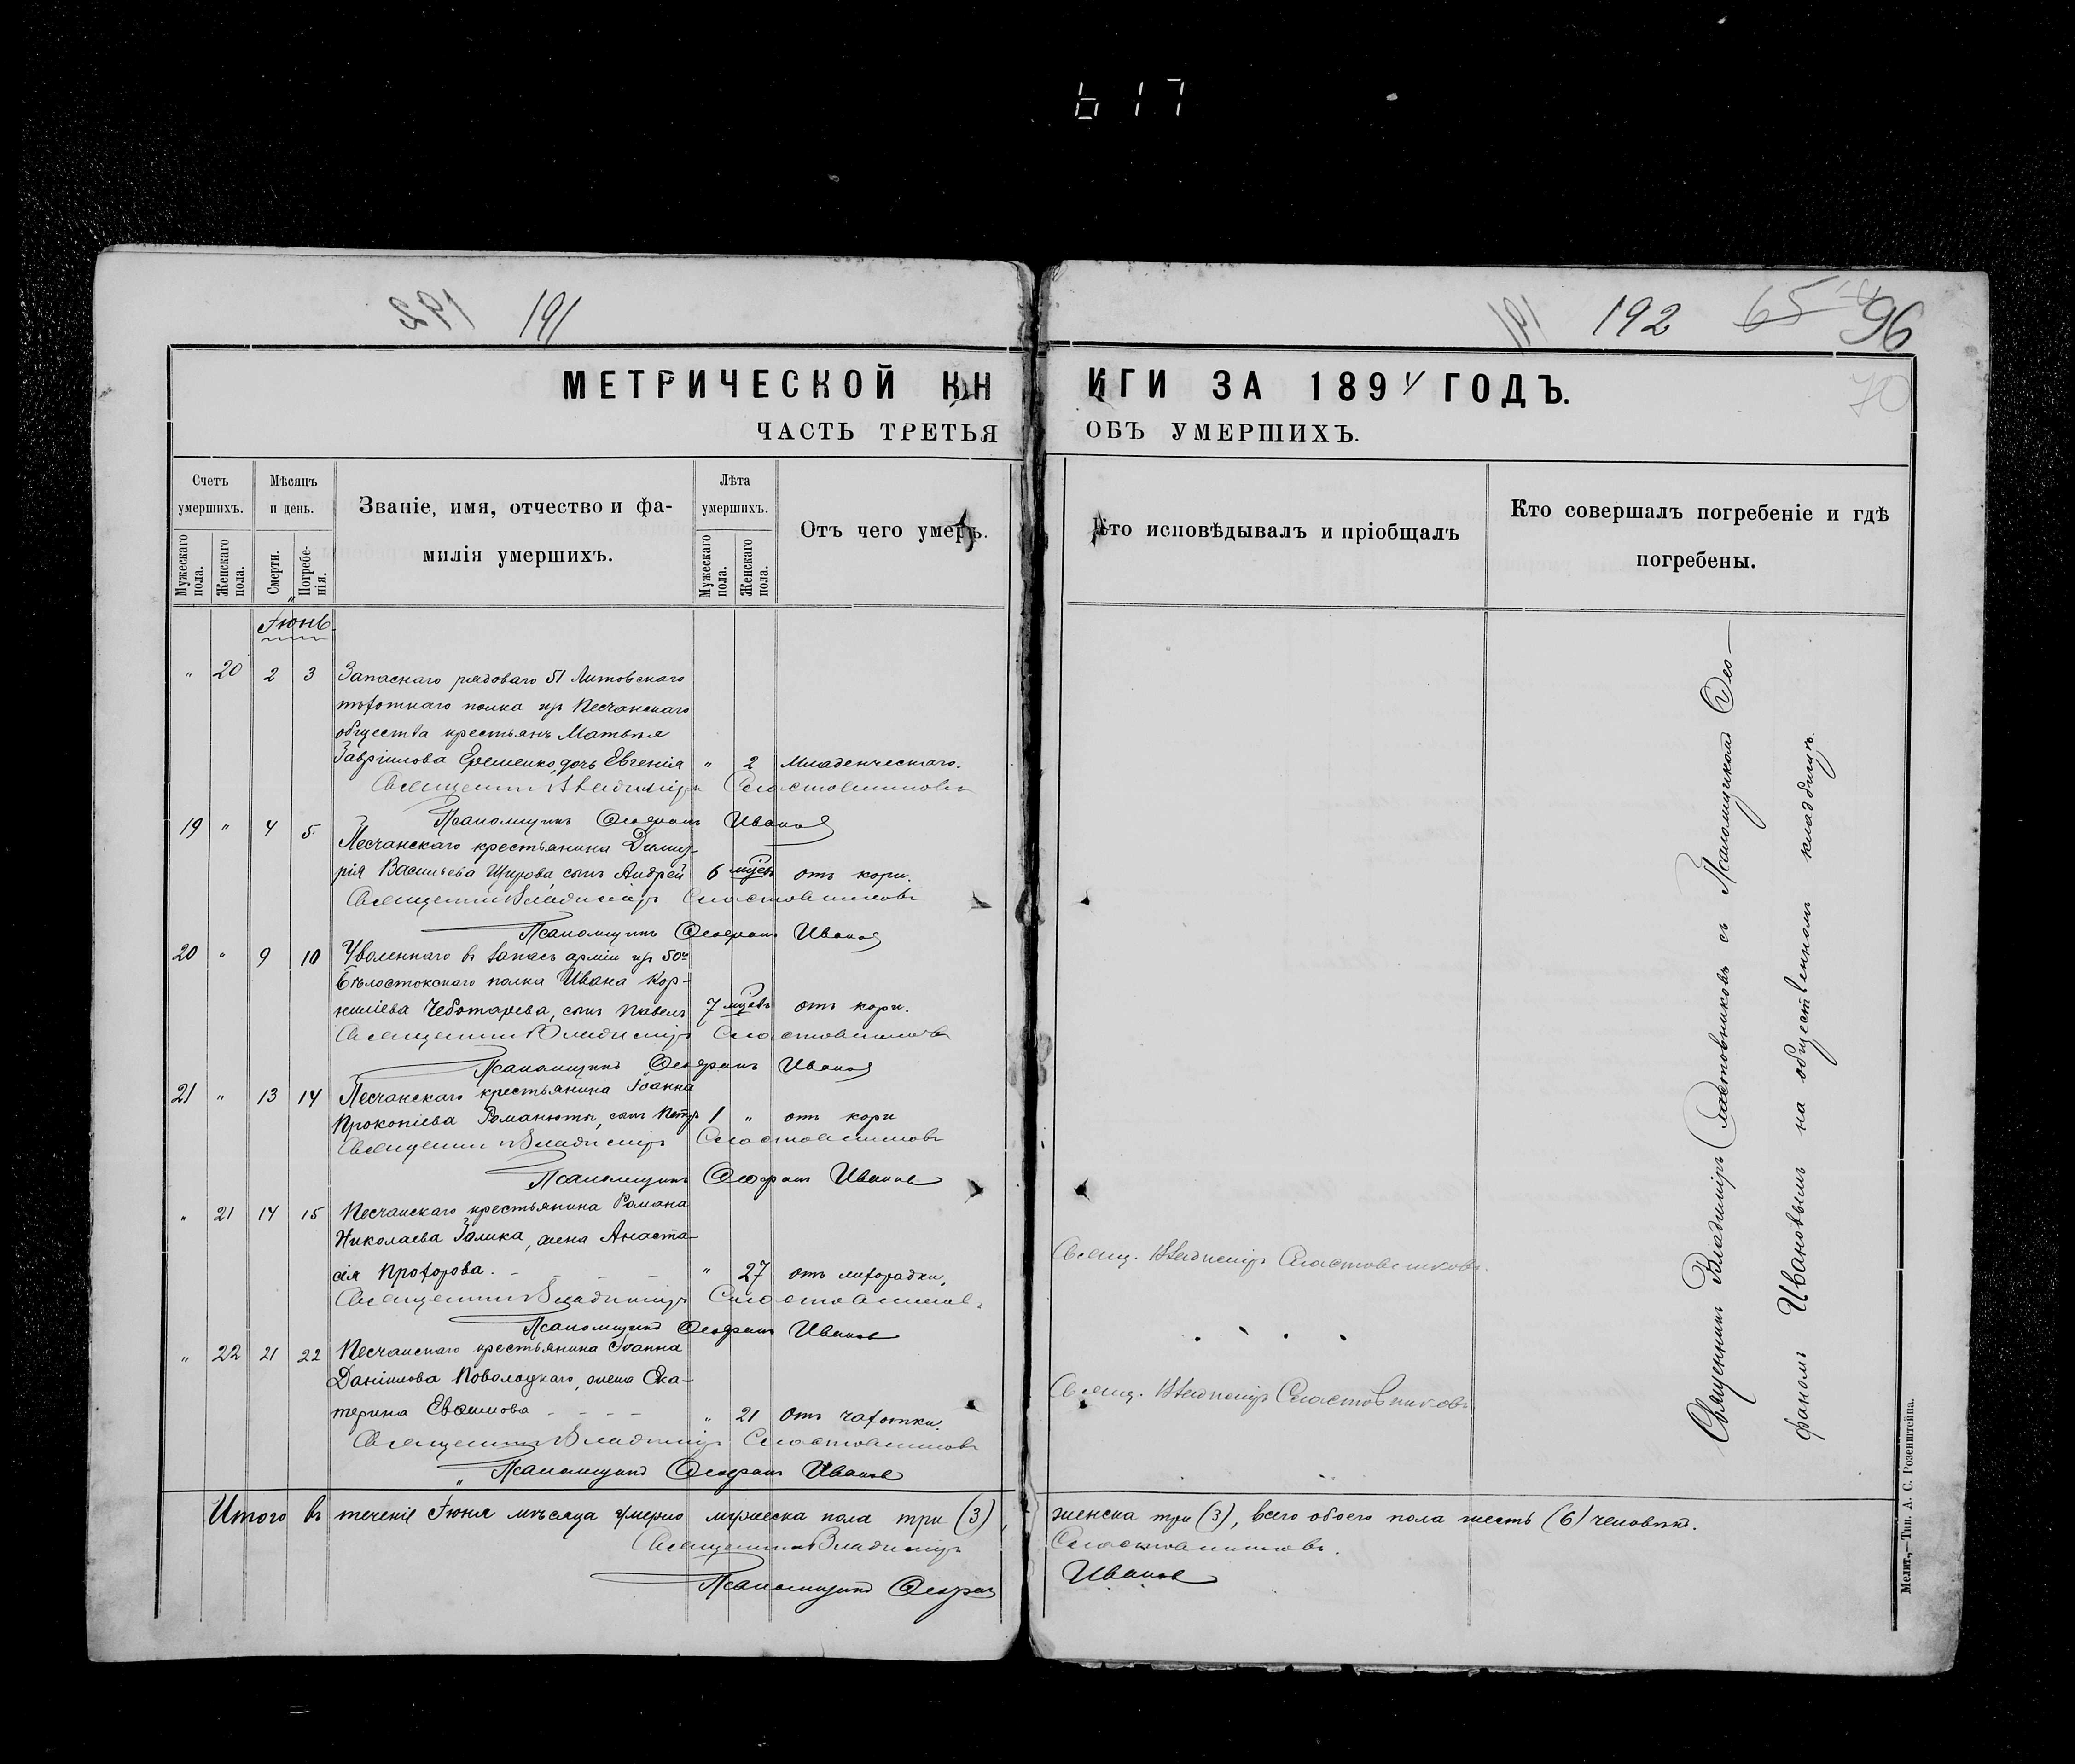 617
192 191
191 192 65 96
70
МЕТРИЧЕСКОЙ КНИГИ ЗА 1891 ГОДЪ.
ЧАСТЬ ТРЕТЬЯ ОБЪ УМЕРШИХЪ.
Счетъ умершихъ.
Мужескаго пола.
Женскаго пола.
Мѣсяцъ и день.
Смерти.
Погребенія.
Званіе, имя, отчество и фамилія умершихъ.
Лѣта умершихъ.
Мужескаго пола.
Женскаго пола.
Отъ чего умеръ.
Кто исповѣдывалъ и пріобщалъ
Кто совершалъ погребеніе и гдѣ погребены.
Іюнь
" 20 2 3 Запаснаго рядоваго 51 Литовскаго
пѣхотнаго полка изъ Песчанскаго
общества крестьянъ Матѳія
Гавріилова Еременко, дочь Евгенія " 2 Младенческаго.
Священникъ Владиміръ Сластовниковъ
Псаломщикъ Ѳеофанъ Ивановъ
19 " 4 5 Песчанскаго крестьянина Димит-
рія Васильева Щурова, сынъ Андрей 6 мцевъ отъ кори.
Священникъ Владиміръ Сластовниковъ
Псаломщикъ Ѳеофанъ Ивановъ
20 " 9 10 Уволеннаго въ запасъ арміи изъ 50го
Бѣлостокскаго полка Ивана Кор-
нилієва Чеботарева, сынъ Павелъ 7 мцевъ отъ кори.
Священникъ Владиміръ Сластовниковъ
Псаломщикъ Ѳеофанъ Ивановъ
21 " 13 14 Песчанскаго крестьянина Іоанна
Прокопіева Романюты, сынъ Петръ 1 " отъ кори
Священникъ Владиміръ Сластовниковъ
Псаломщикъ Ѳеофанъ Ивановъ
" 21 14 15 Песчанскаго крестьянина Романа
Николаева Галика, жена Анаста-
сія Прохорова. " 27 отъ лихорадки.
Свящ. Владиміръ Сластовниковъ.
Священникъ Владиміръ Сластовниковъ.
Псаломщикъ Ѳеофанъ Ивановъ
" 22 21 22 Песчанскаго крестьянина Іоанна
Даніилова Поволоцкаго, жена Ека-
терина Евѳимова " 21 отъ чахотки.
Свящ. Владиміръ Сластовниковъ
Священникъ Владиміръ Сластовниковъ
Псаломщикъ Ѳеофанъ Ивановъ
Священникъ Владиміръ Сластовниковъ съ Псаломщикомъ Ѳео-
фаномъ Ивановымъ на общественномъ кладбищѣ.
Итого въ теченіе Іюня мѣсяца умерло мужеска пола три (3), женска три (3), всего обоего пола шесть (6) человѣкъ.
Священникъ Владиміръ Сластовниковъ.
Псаломщикъ Ѳеофанъ Ивановъ
Мелит.,—Тип. А. С. Розенштейна.